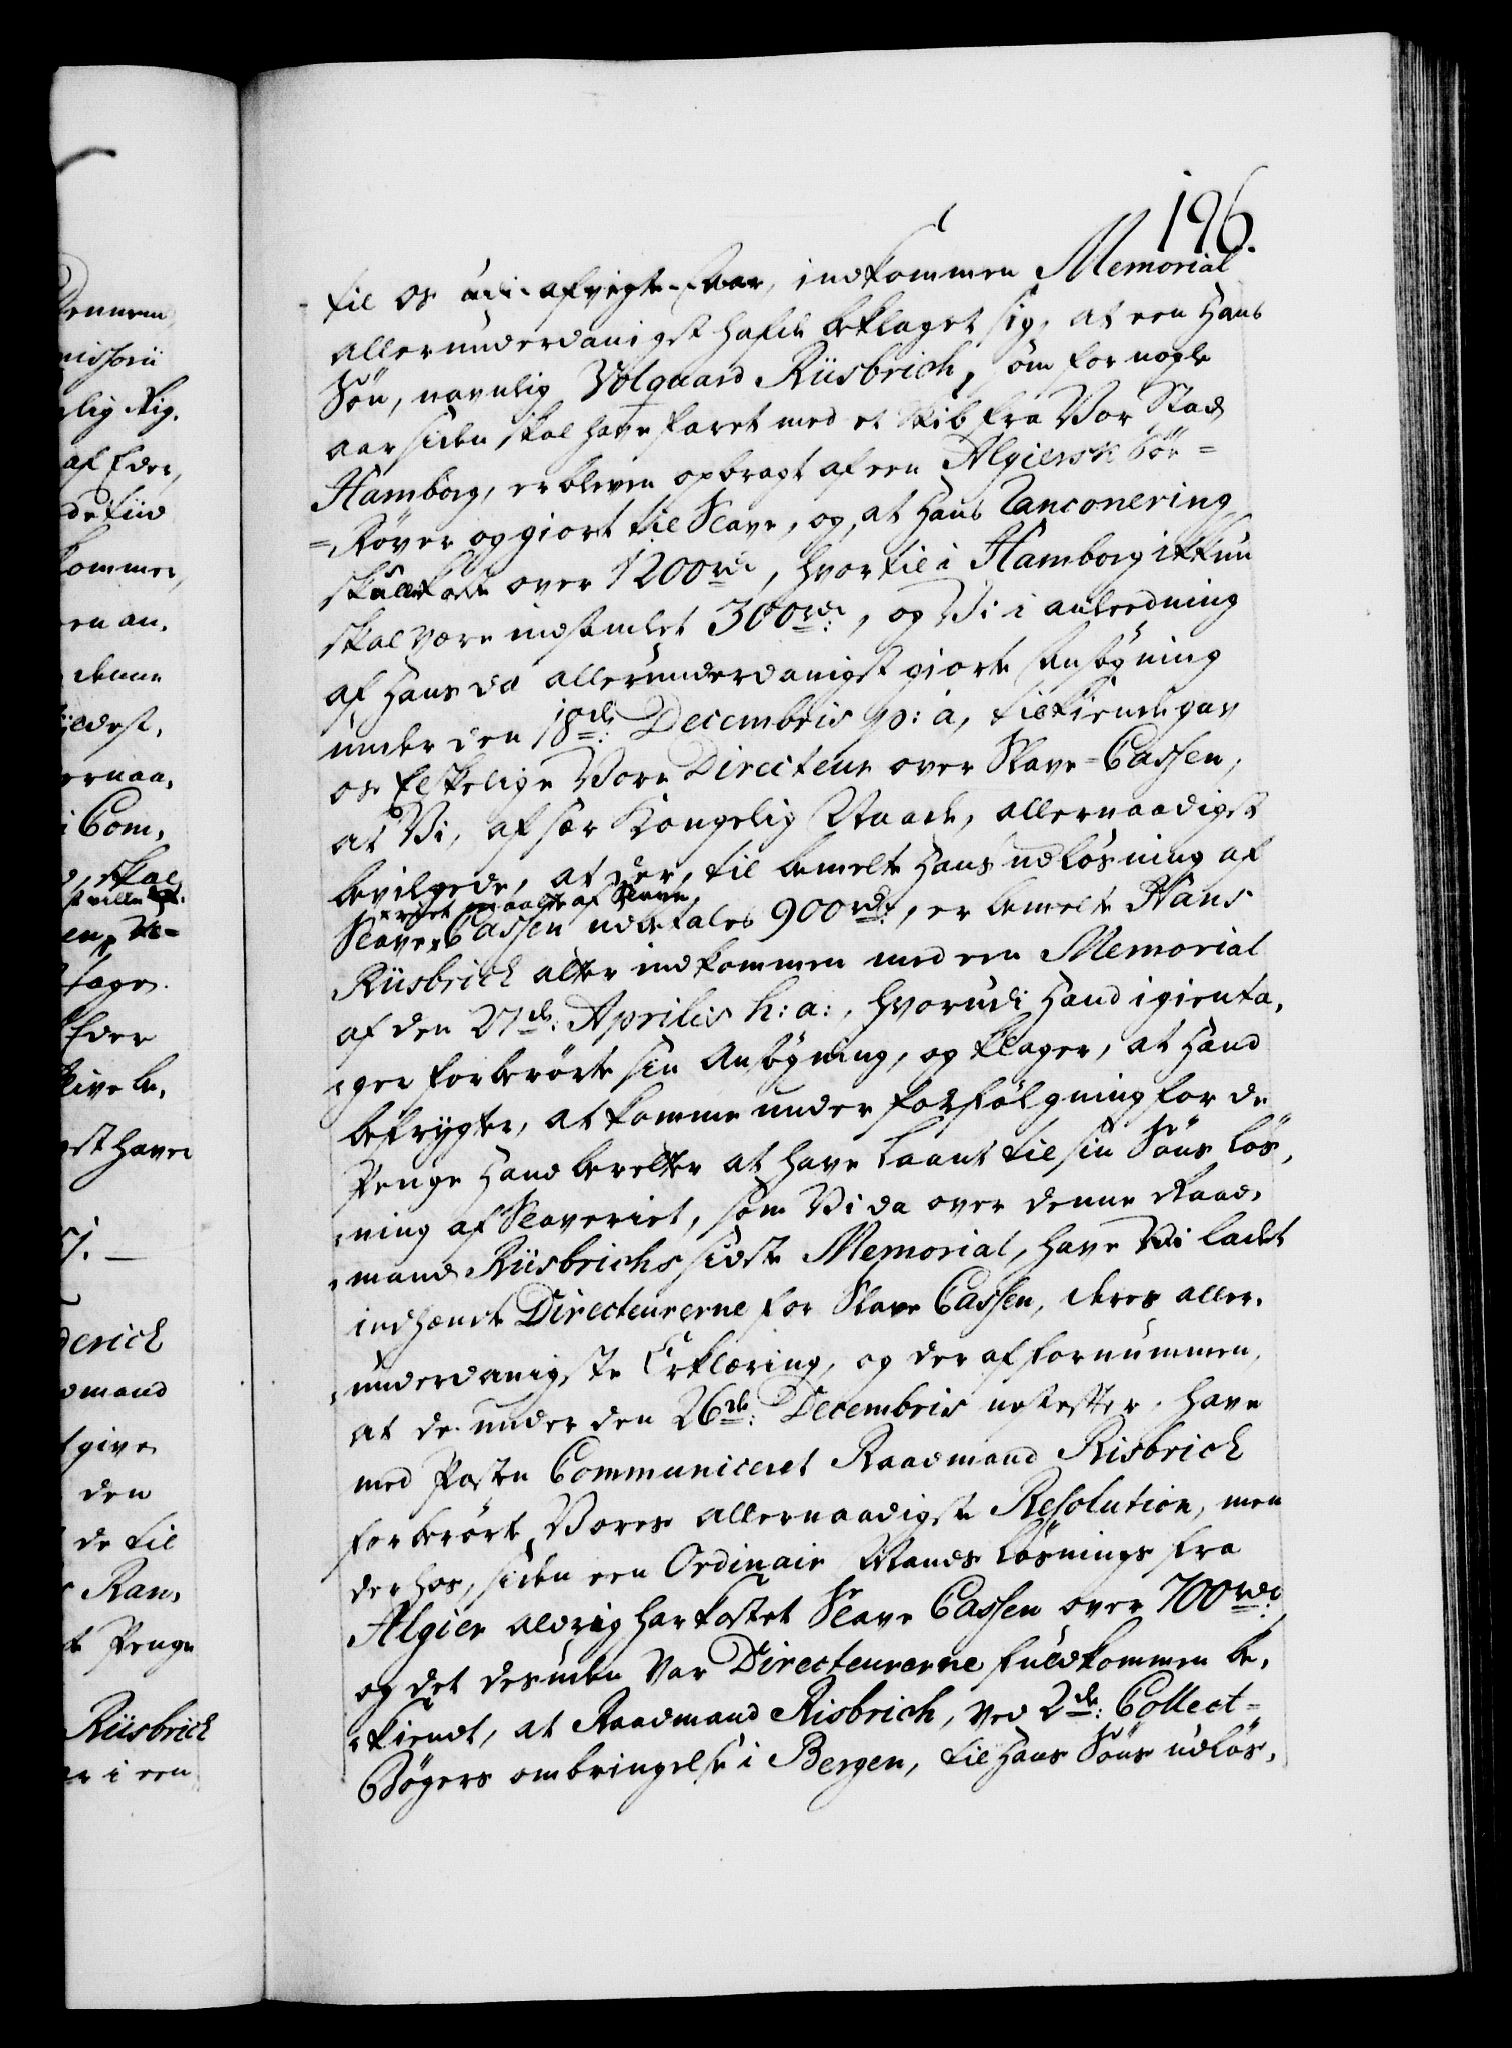 196.
til os udi afvigte Aar, indkommen Memorial
allerunderdanigst hafde beklaget sig, at een Hans
Søn, navnlig Volqvard Riisbrich, som for nogle
aar siden skal have faret med et Skib fra Vor Stad
Hamborg, er bleven opbragt af een Algiersk Sør=
=Røver og giort til Slave, og, at hans Ranconering
skulle koste over 1200 rdr, hvortil i Hamborg ikkun
skal være indsamlet 300 rdr:, og Vi i anleedning
af Hans da allerunderdanigst giorte Ansøgning
under den 18de: Decembris p: a, tilkiendegav
os Elskelige Vore Directeur over Slave=Cassen,
at Vi, af sær Kongelig Naade, allernaadigst
bevilgede, at der, til bemelte Hans udløsning af
Slaveriet maatte af Slave
Cassen udbetales 900 rdr:, er bemelte Hans
Riisbrich atter indkommen med een Memorial
af den 27de: Aprilis h: a:, hvorudi Hand igienta,
,ger forberørte sin Ansøgning, og klager, at Hand
befrygter, at komme under forfølgning for de
Penge Hand beretter at have laant til sin Søns løs,
,ning af Slaveriet, som Vi da over denne Raad,
,mand Riisbrichs sidste Memorial, have Vi ladet
indhænte Directeurerne for Slave Cassen, deres aller,
,underdanigste Erklæring, og der af fornummen,
at de under den 26de: Decembris nestefter, have
med Posten Communiceret Raadmand Risbrich
forberørte Vores allernaadigste Resolution, men
der hos, siden een Ordinair Mands løsnings fra
Algier aldrig har kostet Slave Cassen over 700 rdr:
og det desuden var Directeurerne fuldkommen be,
,kiendt, at Raadmand Risbrich, ved 2de: Collect=
Bøgers ombringelse i Bergen, til Hans Søns udløs,